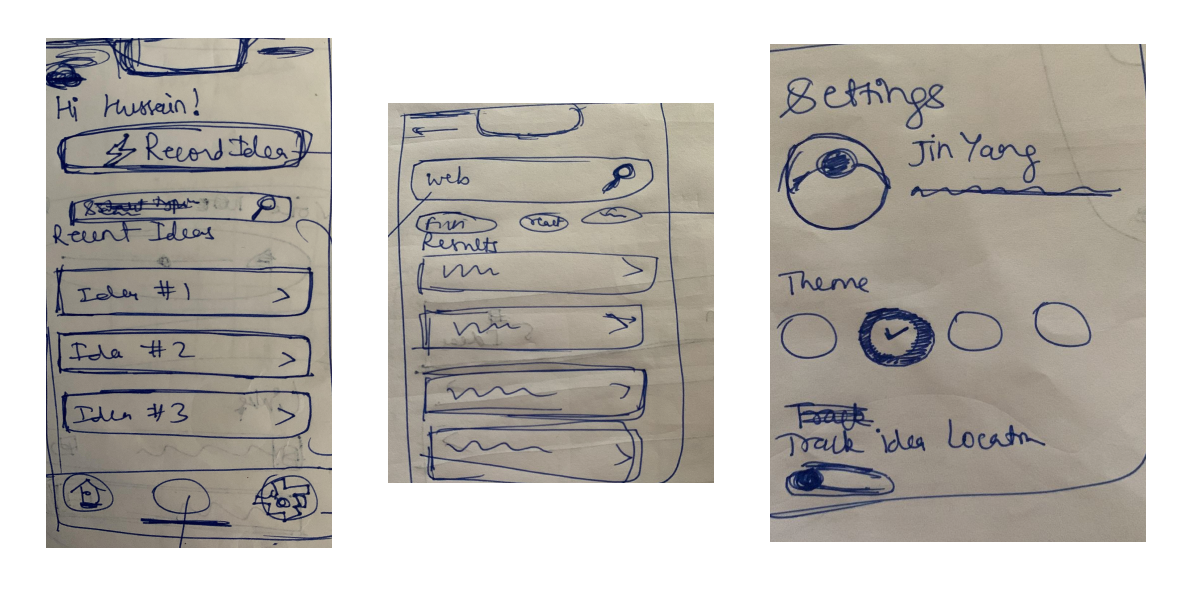 Hi Hussain!
Record Idea
Recent Ideas
Idea #1
Ida #2
Idea #3
web
react
Results
Settings
Jin Yang
Theme
Track
Track idea Locatn